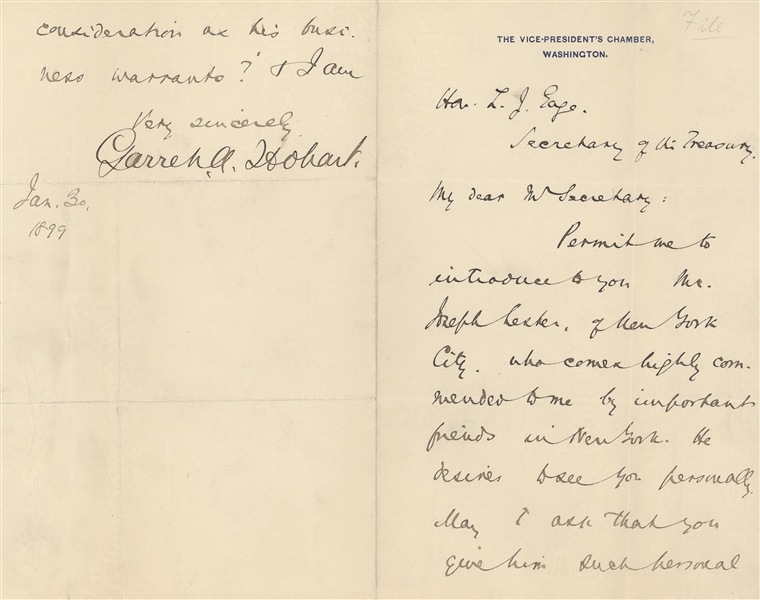 File
THE VICE-PRESIDENT'S CHAMBER,
WASHINGTON.
Hon. L. J. Gage.
Secretary of the Treasury.
My dear Mr Secretary:
Permit me to
introduce to you Mr.
Joseph Lester, of New York
City. who comes highly com-
mended to me by important
friends in New York. He
desires to see you personally.
May I ask that you
give him such personal
consideration as his busi-
ness warrants? & I am
Very sincerely
Garret A. Hobart.
Jan. 30,
1899